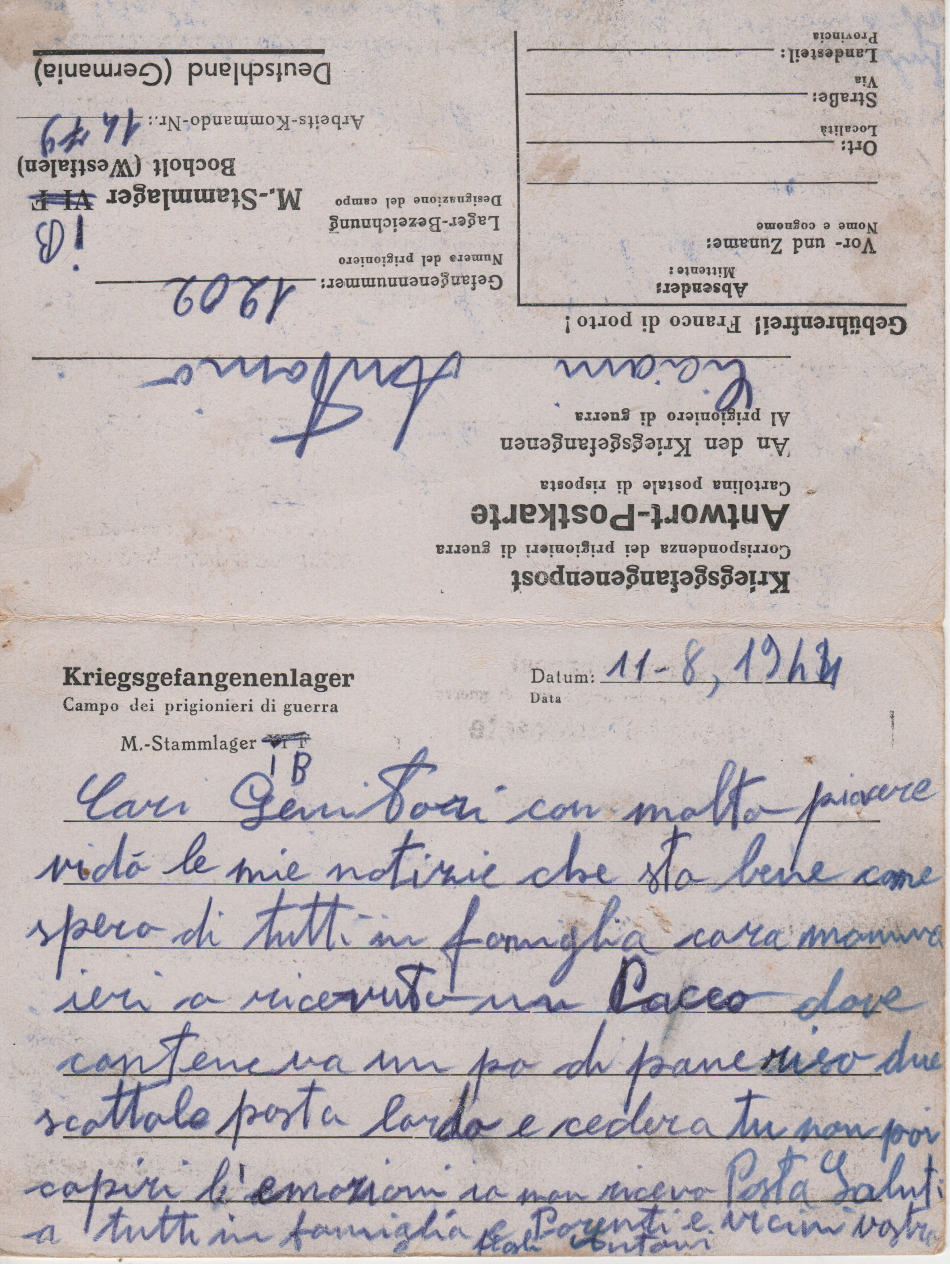 Kriegsgefangenenpost
Corrispondenza dei prigionieri di guerra
Antwort-Postkarte
Cartolina postale di risposta
An den Kriegsgefangenen
Al prigioniero di guerra
Antonio
Gebührenfrei! Franco di porto!
Absender:
Mittente:
Vor- und Zuname:
Nome e cognome
Ort:
Località
Straße:
Via
Landesteil:
Provincia
Gefangenennummer: 1202
Numero del prigioniero
Lager-Bezeichnung
Designazione del campo
I B
M.-Stammlager VI F
Bocholt (Westfalen)
Arbeits-Kommando-Nr.: 1479
Deutschland (Germania)
Kriegsgefangenenlager
Campo dei prigionieri di guerra
Datum: 11-8, 1944
Data
M.-Stammlager VI F
I B
Cari Genitori con molto piacere
vido le mie notizie che sto bene come
spero di tutti in famiglia cara mamma
ieri o ricevuto un Pacco dove
conteneva un po di pane riso due
scattole pasta lardo e cedera tu non poi
capiri l'emozioni io non ricevo Posta Saluti
a tutti in famiglia e Parenti e vicini vostro
Antoni